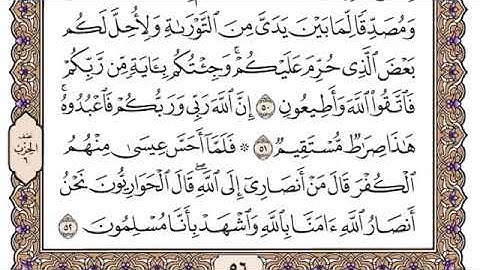 وَمُصَدِّقًا لِّمَا بَيْنَ يَدَىَّ مِنَ ٱلتَّوْرَىٰةِ وَلِأُحِلَّ لَكُم
بَعْضَ ٱلَّذِى حُرِّمَ عَلَيْكُمْ ۚ وَجِئْتُكُم بِـَٔايَةٍ مِّن رَّبِّكُمْ
فَٱتَّقُوا۟ ٱللَّهَ وَأَطِيعُونِ ٥٠ إِنَّ ٱللَّهَ رَبِّى وَرَبُّكُمْ فَٱعْبُدُوهُ ۗ
هَـٰذَا صِرَٰطٌ مُّسْتَقِيمٌ ٥١ ۞ فَلَمَّآ أَحَسَّ عِيسَىٰ مِنْهُمُ
ٱلْكُفْرَ قَالَ مَنْ أَنصَارِىٓ إِلَى ٱللَّهِ ۖ قَالَ ٱلْحَوَارِيُّونَ نَحْنُ
أَنصَارُ ٱللَّهِ ءَامَنَّا بِٱللَّهِ وَٱشْهَدْ بِأَنَّا مُسْلِمُونَ ٥٢
نصف
الحزب
٦
٥٦